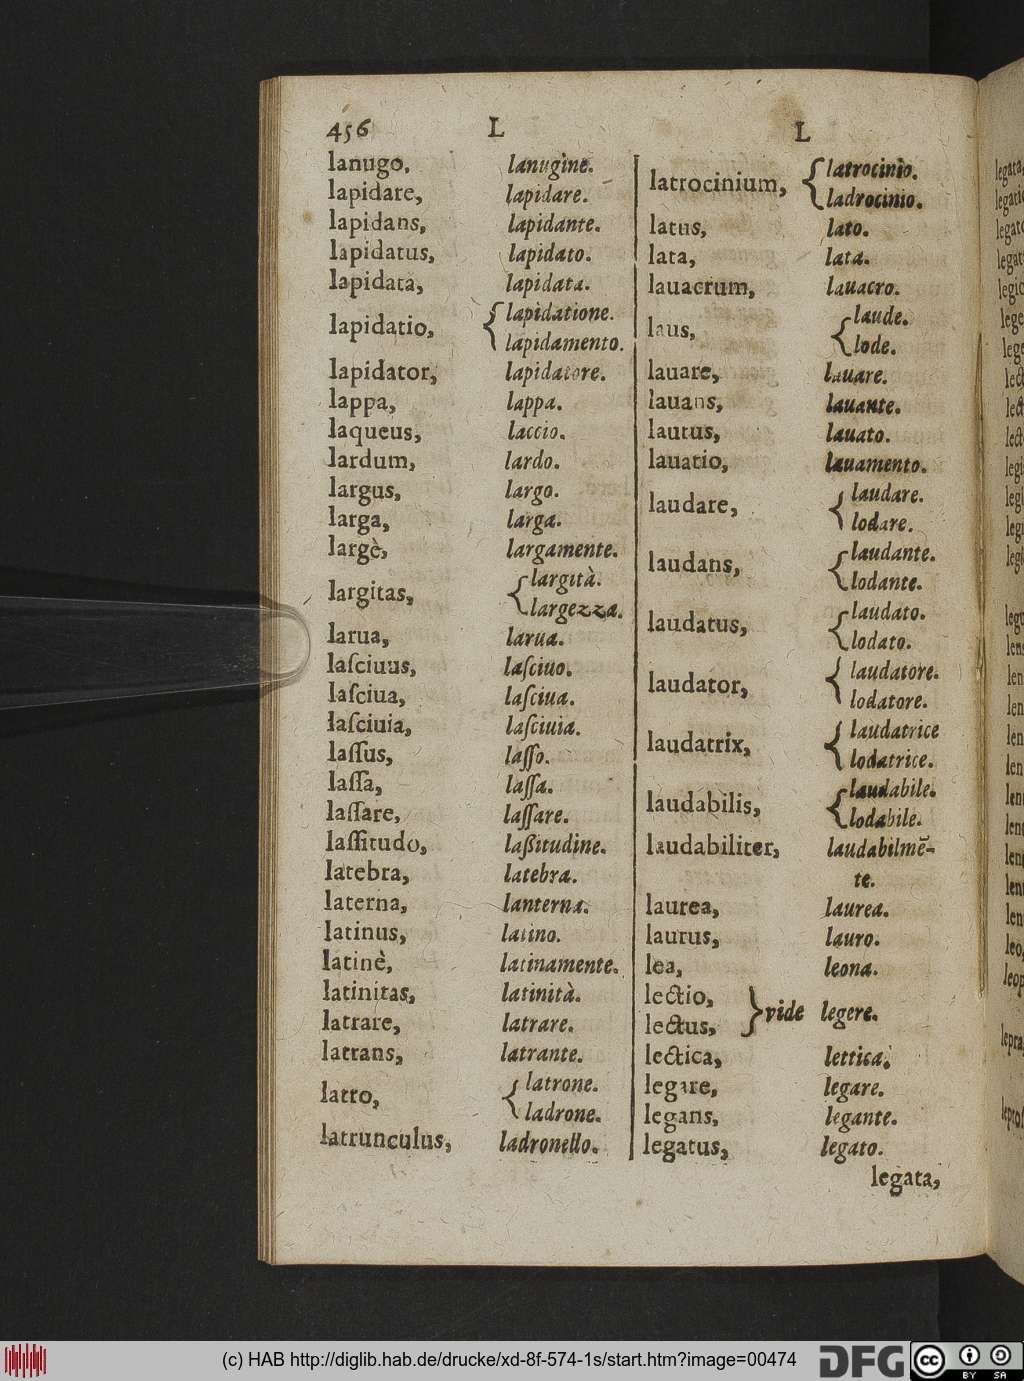 456 L L
lanugo, lanugine.
lapidare, lapidare.
lapidans, lapidante.
lapidatus, lapidato.
lapidata, lapidata.
lapidatio, { lapidatione.
lapidamento.
lapidator, lapidatore.
lappa, lappa.
laqueus, laccio.
lardum, lardo.
largus, largo.
larga, larga.
largè, largamente.
largitas, { largità.
largezza.
larua, larua.
laſciuus, laſciuo.
laſciua, laſciua.
laſciuia, laſciuia.
laſſus, laſſo.
laſſa, laſſa.
laſſare, laſſare.
laſſitudo, laßitudine.
latebra, latebra.
laterna, lanterna.
latinus, latino.
latinè, latinamente.
latinitas, latinità.
latrare, latrare.
latrans, latrante.
latro, { latrone.
ladrone.
latrunculus, ladronello.
latrocinium, { latrocinio.
ladrocinio.
latus, lato.
lata, lata.
lauacrum, lauacro.
laus, { laude.
lode.
lauare, lauare.
lauans, lauante.
lautus, lauato.
lauatio, lauamento.
laudare, { laudare.
lodare.
laudans, { laudante.
lodante.
laudatus, { laudato.
lodato.
laudator, { laudatore.
lodatore.
laudatrix, { laudatrice
lodatrice.
laudabilis, { laudabile.
lodabile.
laudabiliter, laudabilmē-
te.
laurea, laurea.
laurus, lauro.
lea, leona.
lectio,
lectus, } vide legere.
lectica, lettica.
legare, legare.
legans, legante.
legatus, legato.
legata,
(c) HAB http://diglib.hab.de/drucke/xd-8f-574-1s/start.htm?image=00474
DFG
cc BY SA